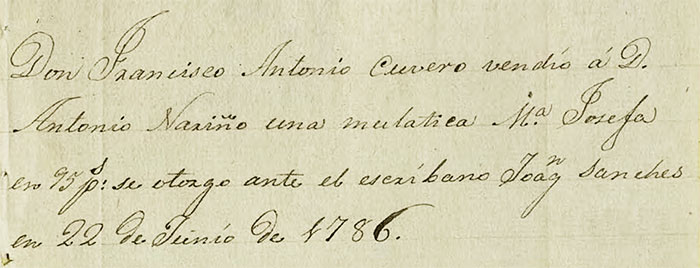 Don Francisco Antonio Cuvero vendió á D.
Antonio Nariño una mulatica M.ª Josefa
en 95 p.s se otorgo ante el escribano Joaq.n Sanches
en 22 de Junio de 1786.